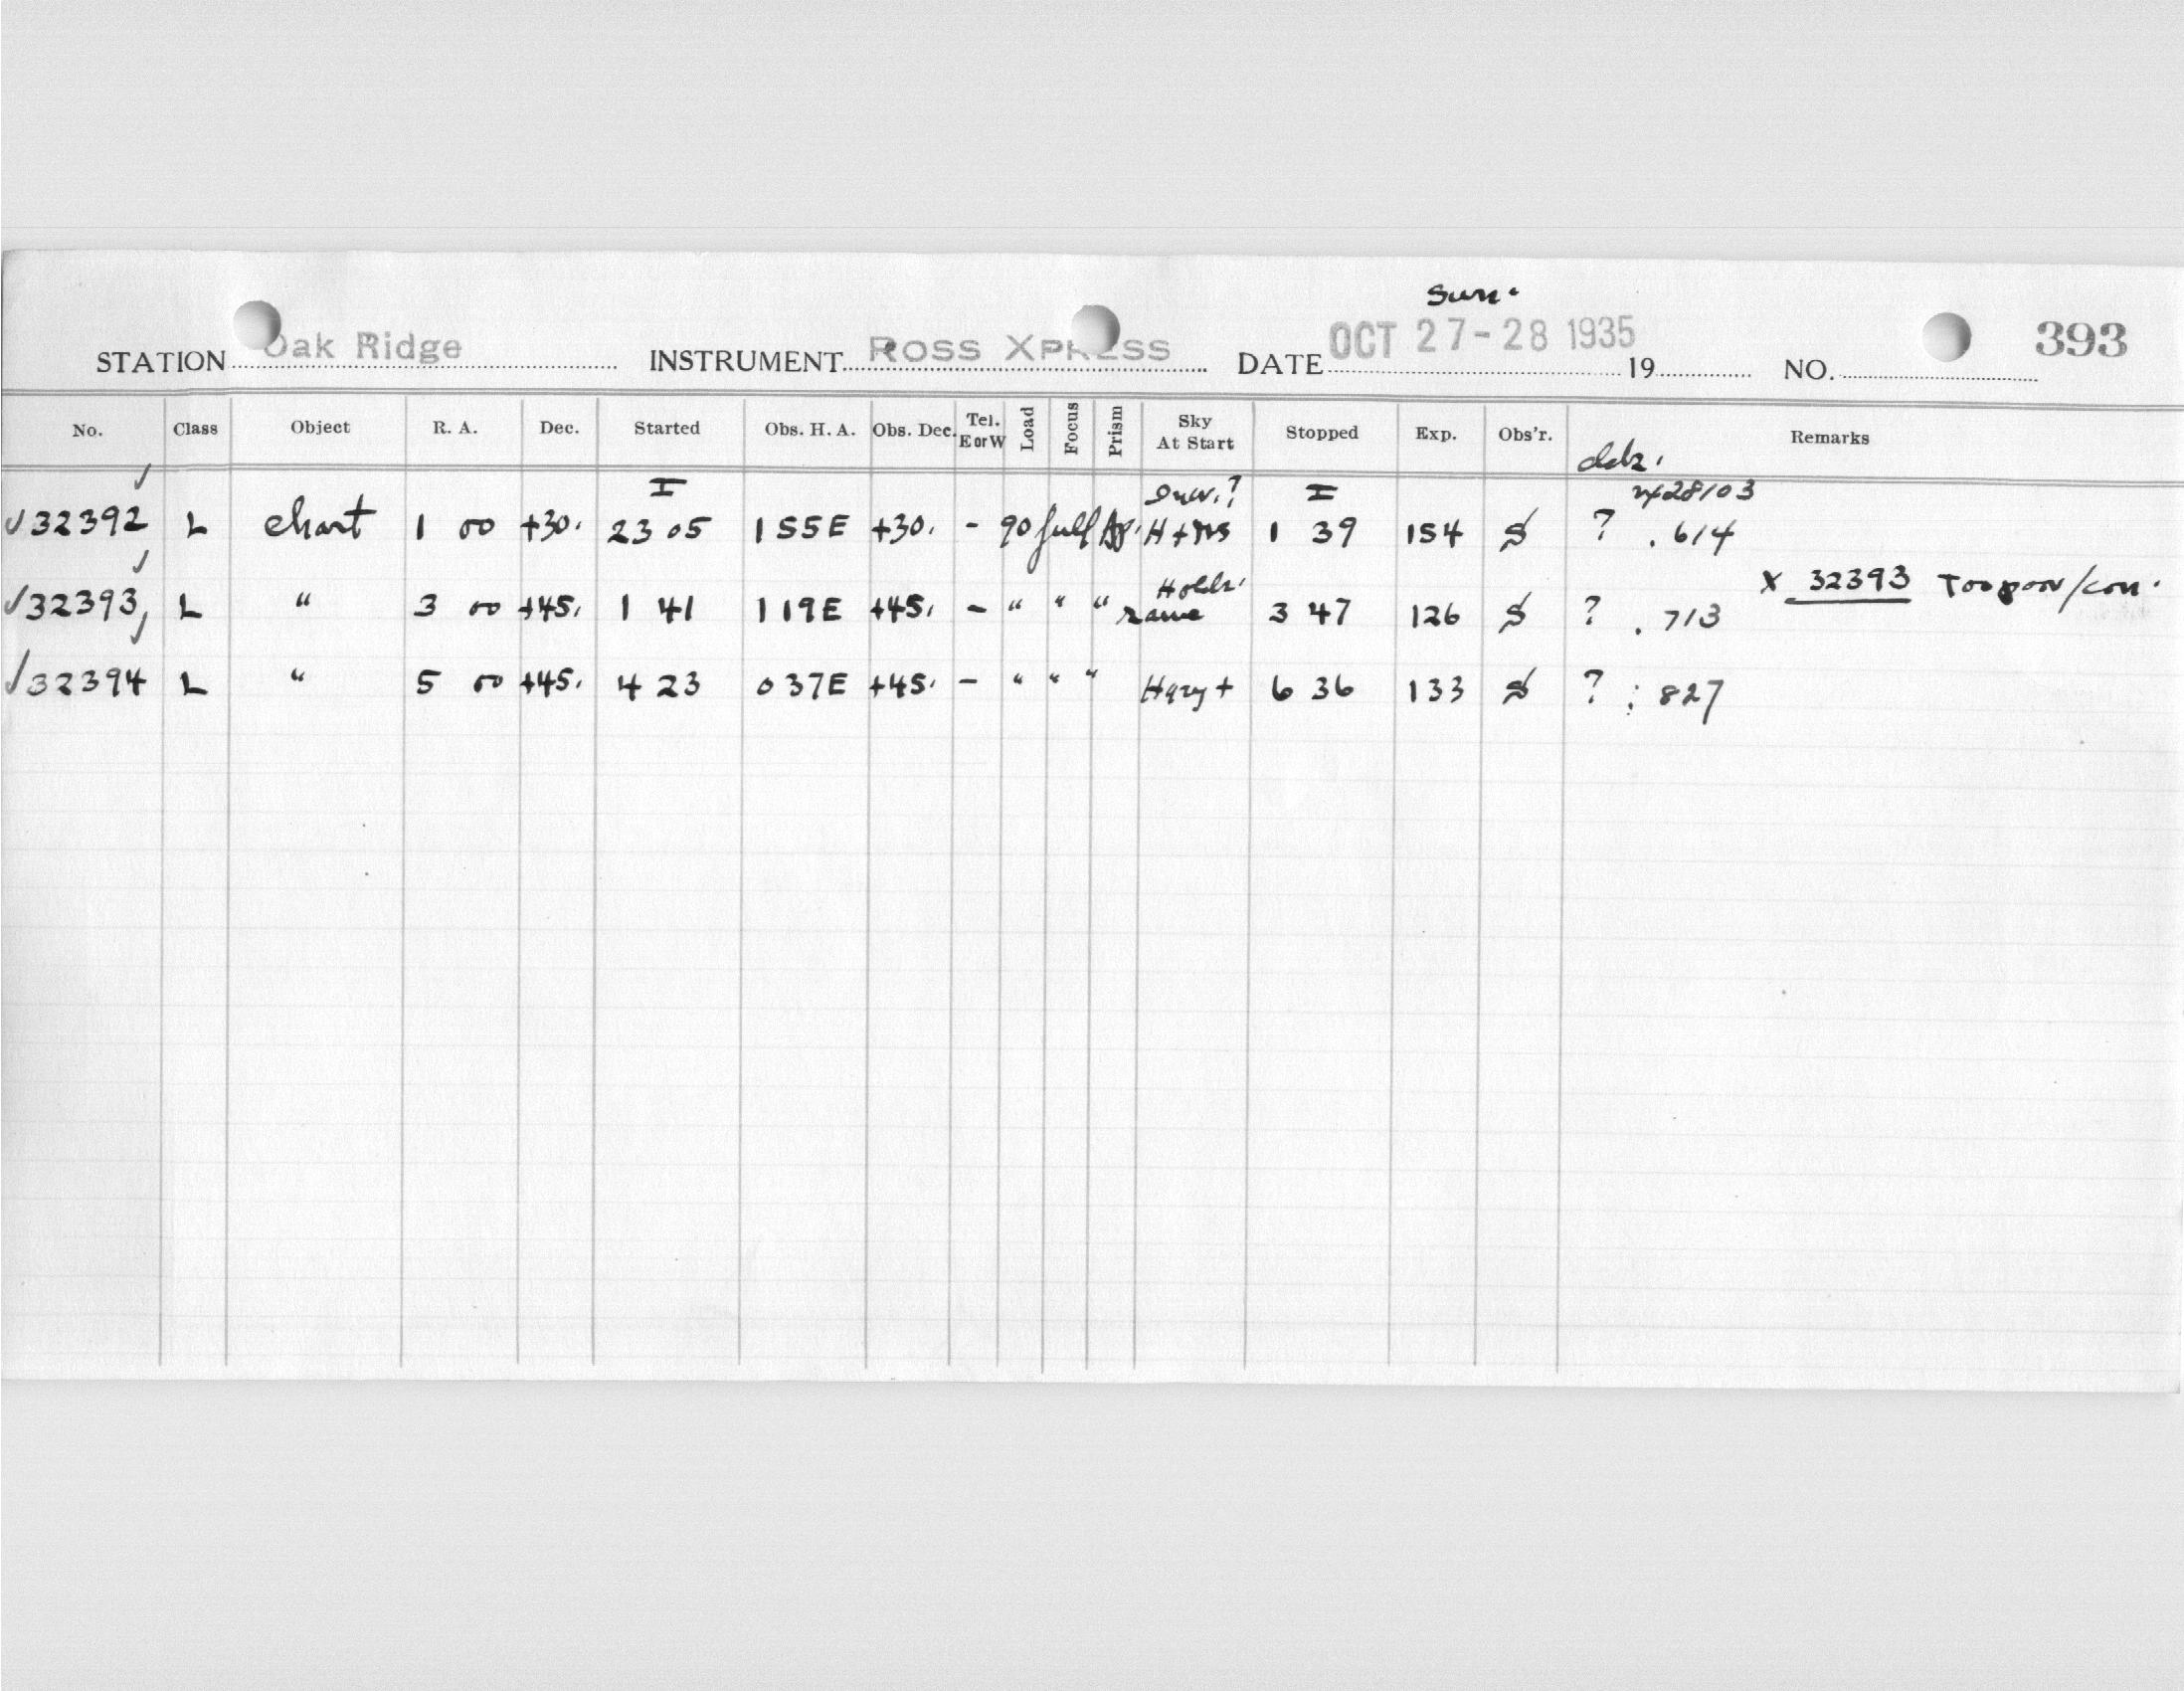 Sun.
STATION Oak Ridge INSTRUMENT ROSS XPRESS DATE OCT 27-28 1935 19 NO. 393
No. Class Object R. A. Dec. Started Obs. H. A. Obs. Dec. Tel. E or W Load Focus Prism Sky At Start Stopped Exp. Obs'r. Remarks
I I
✓32392 ✓ L chart 1 00 +30. 23 05 1 55E +30. - 90 full Ap. H + 1 39 154 S ? .614
Holds
✓32393 ✓ L " 3 00 +45. 1 41 1 19E +45. - " " " same 3 47 126 S ? .713 X 32393 Too poor/con.
✓32394 ✓ L " 5 00 +45. 4 23 0 37E +45. - " " " Hazy + 6 36 133 S ? : 827